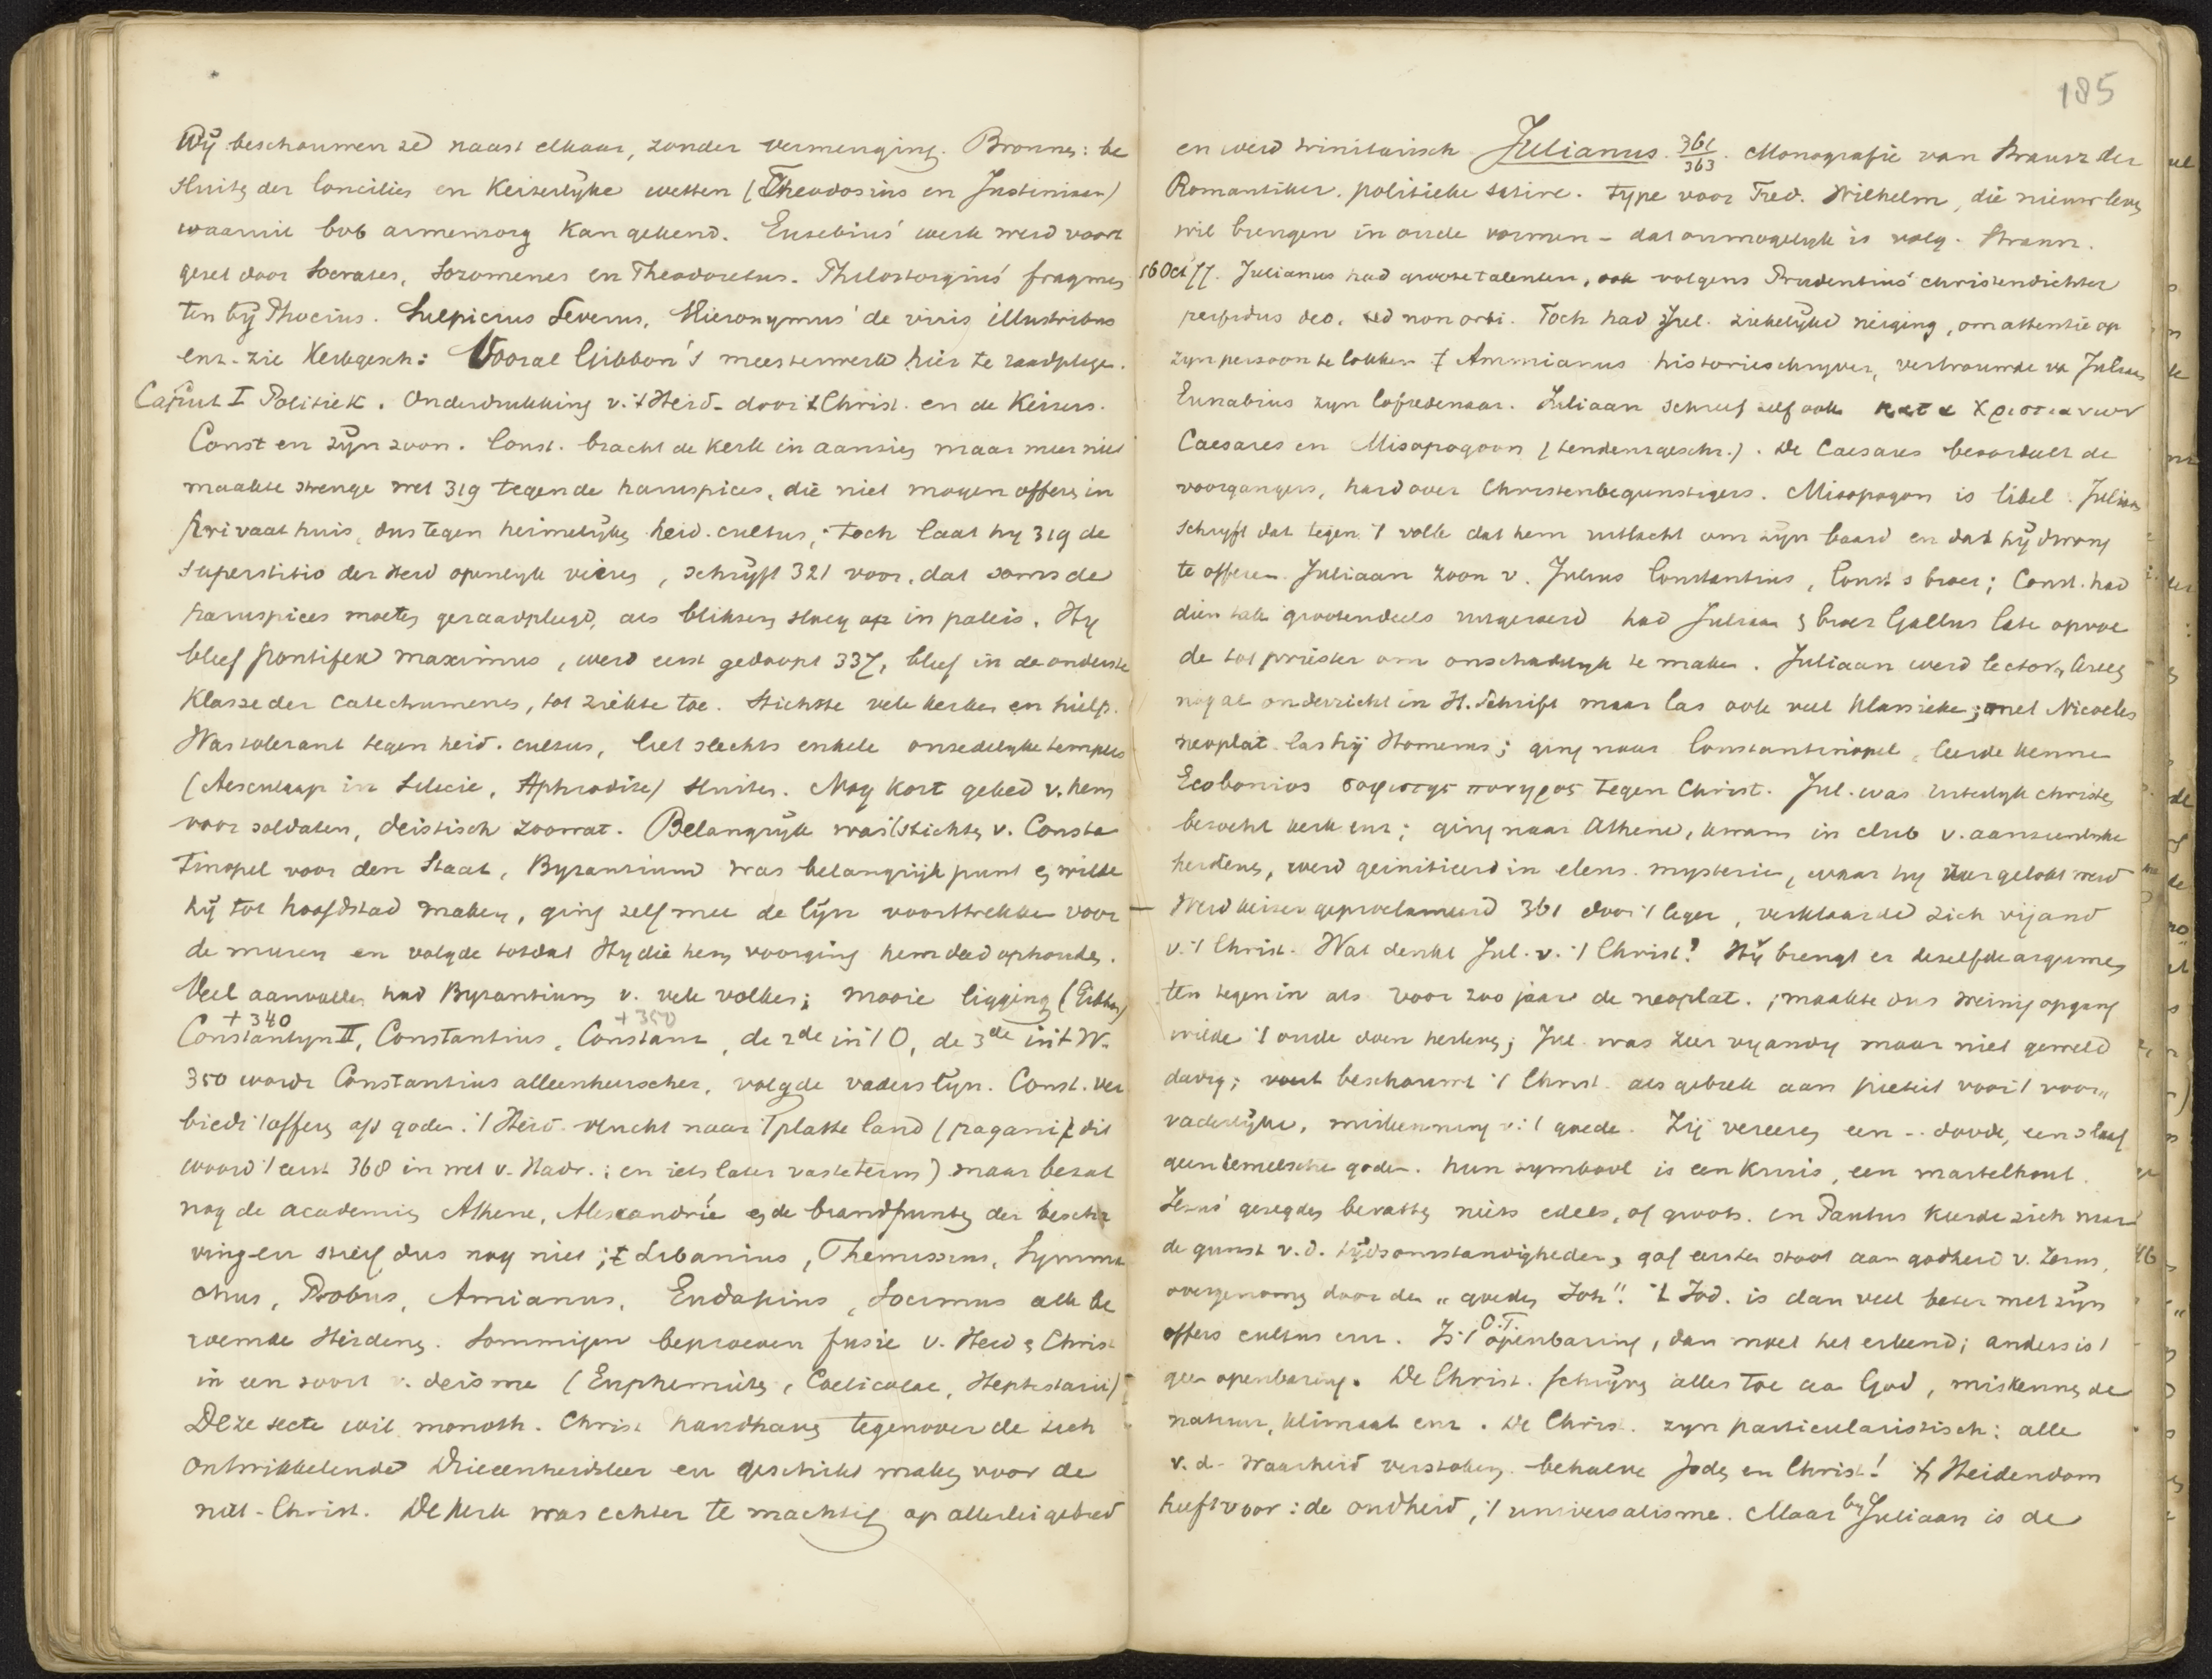 Wij beschouwen ze naast elkaar, zonder vermenging. Bronnen: be
sluiten der Concilies en Keiserlyke wetten (Theodosius en Justiniaan)
waaruit bvb armenzorg kan gekend. Eusebius' werk werd voort
gezet door Socrates, Sozomenes en Theodoretus. Philostorgius' fragmen
ten bij Phocius. Sulpicius Severus, Hieronymus' de viris illustribus
enz. zie Kerkgesch: Vooral Gibbon's meesterwerk hier te raadplegen.
Caput I Politiek. Onderdrukking v. 't Heid. door 't Christ. en de Keizers.
Const en zijn zoon. Const. bracht de kerk in aanzien maar meer niet
maakte strenge wet 319 tegen de haruspices, die niet mogen offeren in
privaat huis, dus tegen heimelijke heid. cultus; toch laat hy 319 de
superstitio der Heid openlyk vieren, schrijft 321 voor, dat soms de
haruspices moeten geraadpleegd, als bliksem sloeg op in paleis. Hy
bleef pontifex maximus, werd eerst gedoopt 337, bleef in de onderste
Klasse der catechumenen, tot ziekte toe. Stichtte vele kerken en hielp.
Was tolerant tegen heid. cultus, liet slechts enkele onzedelyke tempels
(Aesculaap in Silicie, Aphrodite) sluiten. Nog kort gebed v. hem
voor soldaten, deistisch zoowat. Belangrijk was stichten v. Consta
tinopel voor den Staat, Byzantium was belangrijk punt en wilde
hij tot hoofdstad maken, ging zelf mee de lijn voorttrekken voor
de muren en volgde totdat Hy die hem voorging hem deed ophouden.
Veel aanvallen had Byzantium v. vele volken; mooie ligging (Gibbon)
+ 340 + 350
Constantyn II, Constantius, Constans, de 2de in 't O, de 3de in 't W.
350 wordt Constantius alleenheerscher, volgde vaders lijn. Const. ver
biedt 't offeren afgoden. 't Heid. vlucht naar 't platte land (pagani, dit
woord 't eerst 368 in wet v. ; en iets later vaste term) maar bezat
nog de academies Athene, Alexandrië en de brandpunten der bescha
ving en stierf dus nog niet; Libanius, Themissius, Symma
chus, Probus, Amianus, Eudapius, Socimus alle be
roemde Heidenen. Sommigen beproeven fusie v. Heid & Christ
in een soort v. deisme (Euphemiten, Coelicolae, Hepsistarii)
Deze secte wil monoth. Christ handhaven tegenover de zich
ontwikkelende Drieeenheidsleer en geschikt maken voor de
niet-Christ. De kerk was echter te machtig op allerlei gebied
185
en werd trinitarisch Julianus 361/363. Monografie van Strausz der
Romantiker. politieke satire. Type voor Fred. Wilhelm, die nieuw leven
wil brengen in oude vormen - dat onmogelyk is volg. Strauss.
16 Oct '77. Julianus had groote talenten, ook volgens Prudentius' christendichter
perfidus deo, sed non orbi. Toch had Jul. ziekelijke neiging, om attentie op
zyn persoon te lokken. Ammianus historieschryver, vertrouwde va Julianus
Eunabius zyn lofredenaar. Juliaan schreef zelf ook κατα Χριστιανων
Caesares en Misopogoon (tendenzgeschr.). De Caesares beoordeelt de
voorgangers, hard over Christenbegunstigers. Misopogon is libel. Juliaan
schryft dat tegen 't volk dat hem uitlacht om zijn baard en dat hij dwong
te offeren. Juliaan zoon v. Julius Constantius, Const.s broer; Const. had
dien tak grootendeels uitgeroeid had Juliaan & broer Gallus laten opvoe
de tot priester om onschadelyk te maken. Juliaan werd lector, kreeg
nog al onderricht in H. Schrift maar las ook veel klassieke; met Nicocles
neoplat. las hij Homerus; ging naar Constantinopel, leerde kennen
Ecobonios σοφιστης πονηρος tegen Christ. Jul. was uiterlyk christen,
bezocht kerk enz; ging naar Athene, kwam in club v. aanzienlyke
heidenen, werd geinitieerd in eleus. mysterien, waar hy
Werd keizer geproclameerd 361 door 't leger, verklaarde zich vijand
v. 't Christ. Wat denkt Jul. v. 't Christ? Hij brengt er dezelfde argumen
ten tegen in als voor 200 jaar de neoplat.; maakte dus weinig opgang
wilde 't oude doen herleven; Jul. was zeer vyandig maar niet geweld
dadig; beschouwt 't Christ. als gebrek aan pieteit voor 't voor„
vaderlijke, miskenning v. 't goede. Zij vereeren een -- doode, een slaaf
geen hemelsche goden. hun symbool is een kruis, een martelhout.
Jezus' gezegden bevatten niets edels, of groots. en Paulus keerde zich naar
de gunst v. d. tijdsomstandigheden, gaf eersten stoot aan godheid v. Jezus,
overgenomen door den „goeden Joh". 't Jod. is dan veel beter met zijn
offers cultus enz. Is 't O.T. openbaring, dan moet het erkend; anders is 't
geen openbaring. De Christ. schrijven alles toe aan God, miskennen de
natuur, klimaat enz. De Chris. zyn particularistisch: alle
v. d. waarheid verstoken behalve Joden en Christ! 't Heidendom
heeft voor: de oudheid, 't universalisme. Maar by Juliaan is de